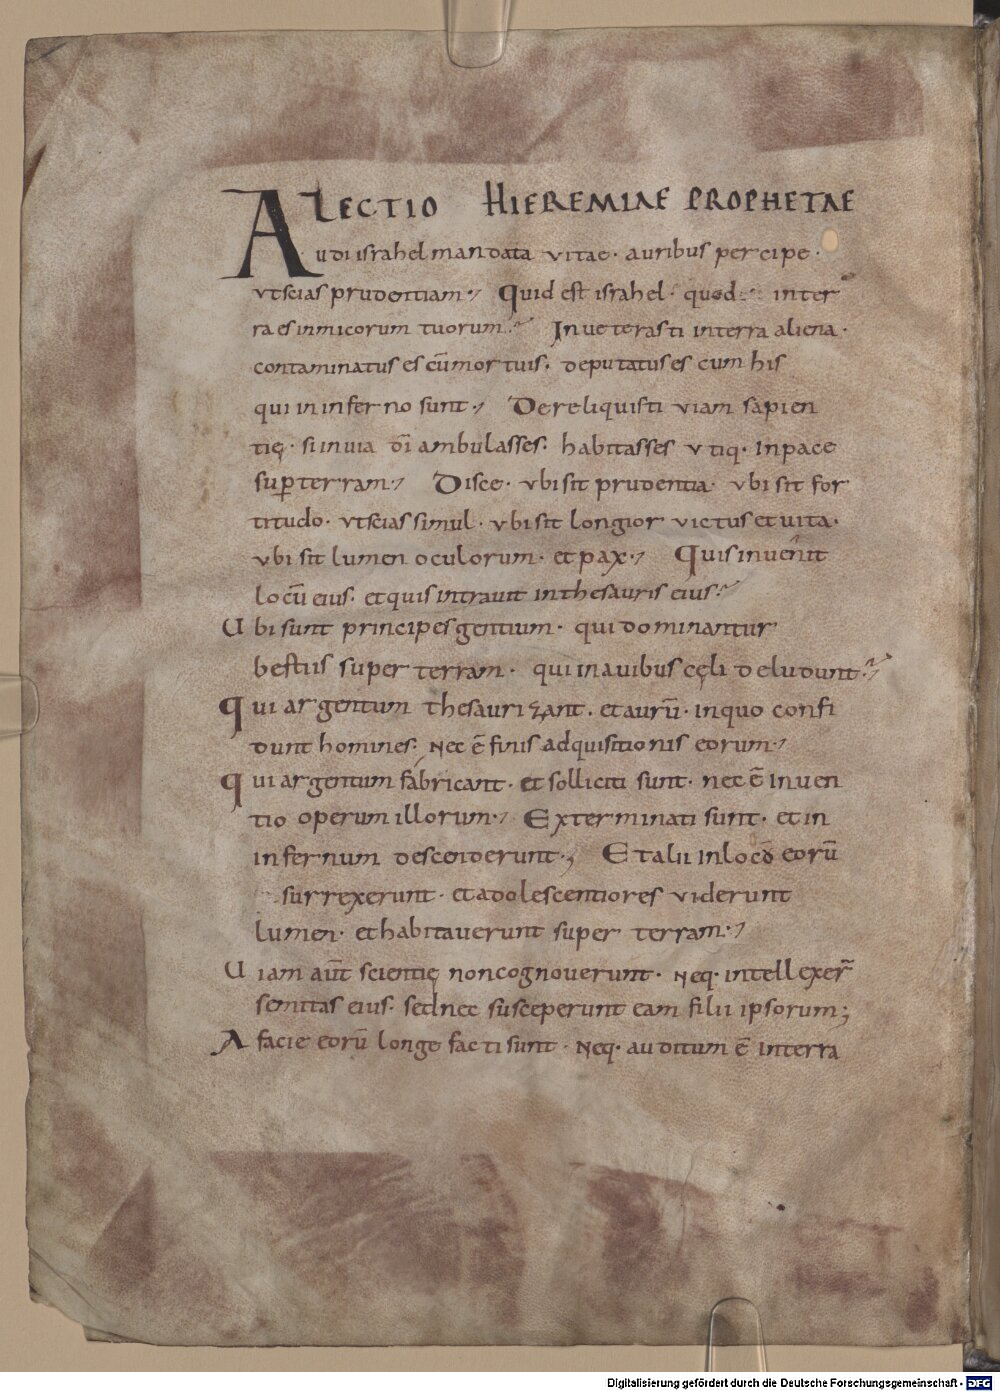 LECTIO HIEREMIAE PROPHETAE
Audi israhel mandata vitae· auribus percipe·
vtscias prudentiam·, Quid est israhel· quod inter
ra es inmicorum tuorum· Inueterasti interra aliena·
contaminatus es cū mortuis· deputatus es cum his
qui in inferno sunt·, Dereliquisti viam sapien
tię· si in uia dī ambulasses· habitasses vtiq· Inpace
sup terram·, Disce· vbi sit prudentia· vbi sit for
titudo· vtscias simul· vbi sit longior victus et uita·
vbi sit lumen oculorum· et pax·, Quis inuenit
locū eius· et quis intrauit in thesauris eius·
Ubi sunt principes gentium· qui dominantur
bestiis super terram· qui in auibus cęli deludunt·
Qui argentum thesaurizant· et aurū· in quo confi
dunt homines· Nec ē finis adquisitionis eorum·,
Qui argentum fabricant· et solliciti sunt· nec ē inuen
tio operum illorum·, Exterminati sunt· et in
infernum descenderunt·, Et alii in locū eorū
surrexerunt· et adolescentiores viderunt
lumen· et habitauerunt super terram·,
Uiam aūt scientię non cognouerunt· Neq· intellexer̄
semitas eius· sed nec susceperunt eam filii ipsorum;
A facie eorū longe facti sunt· Neq· auditum ē interra
Digitalisierung gefördert durch die Deutsche Forschungsgemeinschaft - DFG